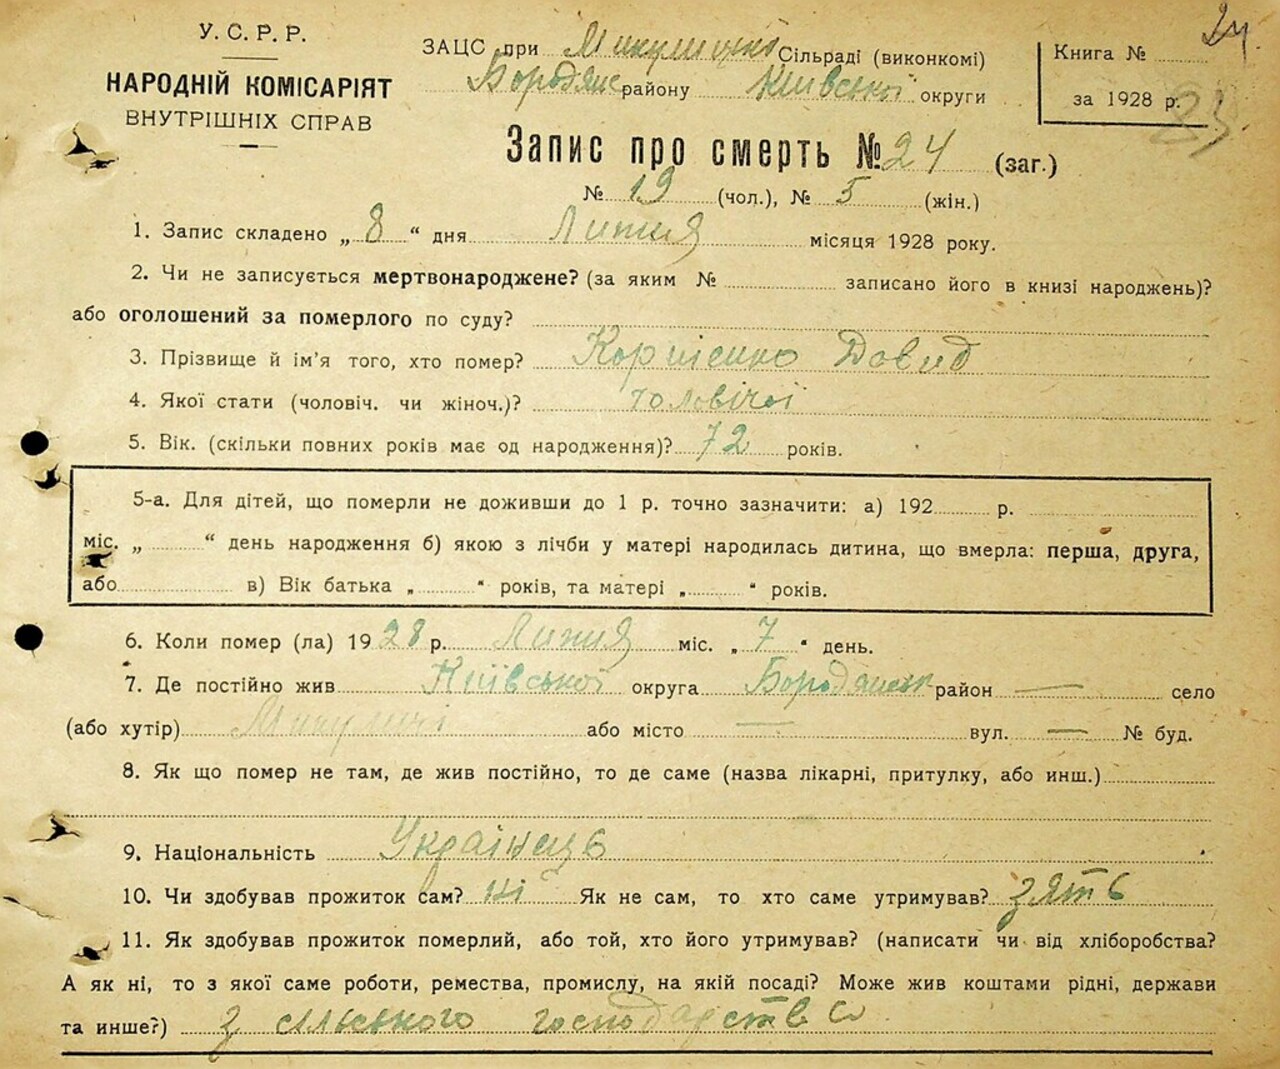 24
У.С.Р.Р.
НАРОДНІЙ КОМІСАРІЯТ
ВНУТРІШНІХ СПРАВ
ЗАЦС при Микулицкої Сільраді (виконкомі)
Бородянс району Київської округи
Книга №
за 1928 р.
Запис про смерть № 24 (заг.)
№ 19 (чол.), № 5 (жін.)
1. Запис складено „ 8 “ дня Липня місяця 1928 року.
2. Чи не записується мертвонароджене? (за яким № записано його в книзі народжень)?
або оголошений за померлого по суду?
3. Прізвище й ім’я того, хто помер? Корпієнко Довид
4. Якої стати (чоловіч. чи жіноч.)? чоловічої
5. Вік. (скільки повних років має од народження)? 72 років.
5-а. Для дітей, що померли не доживши до 1 р. точно зазначити: а) 192 р.
міс. „ “ день народження б) якою з лічби у матері народилась дитина, що вмерла: перша, друга,
або в) Вік батька „ “ років, та матері „ “ років.
6. Коли помер (ла) 1928 р. Липня міс. „ 7 “ день.
7. Де постійно жив Київської округа Бородянськ район — село
(або хутір) Микуличі або місто — вул. — № буд.
8. Як що помер не там, де жив постійно, то де саме (назва лікарні, притулку, або инш.)
9. Національність Українець
10. Чи здобував прожиток сам? ні Як не сам, то хто саме утримував? зять
11. Як здобував прожиток померлий, або той, хто його утримував? (написати чи від хліборобства?
А як ні, то з якої саме роботи, ремества, промислу, на якій посаді? Може жив коштами рідні, держави
та инше?) з сільського господарства